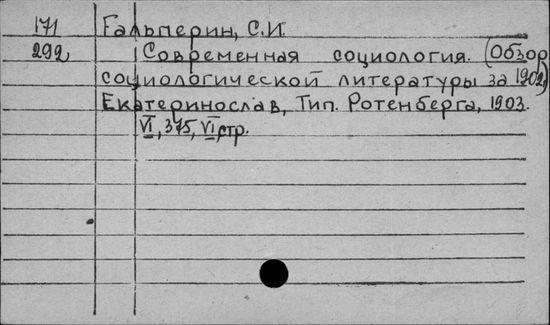 171 Гальперин, С.И.
299 Современная социология. (Обзор
социологической литературы за 1902)
Екатеринослав, Тип. Ротенберга, 1903.
VI, 375, VI стр.